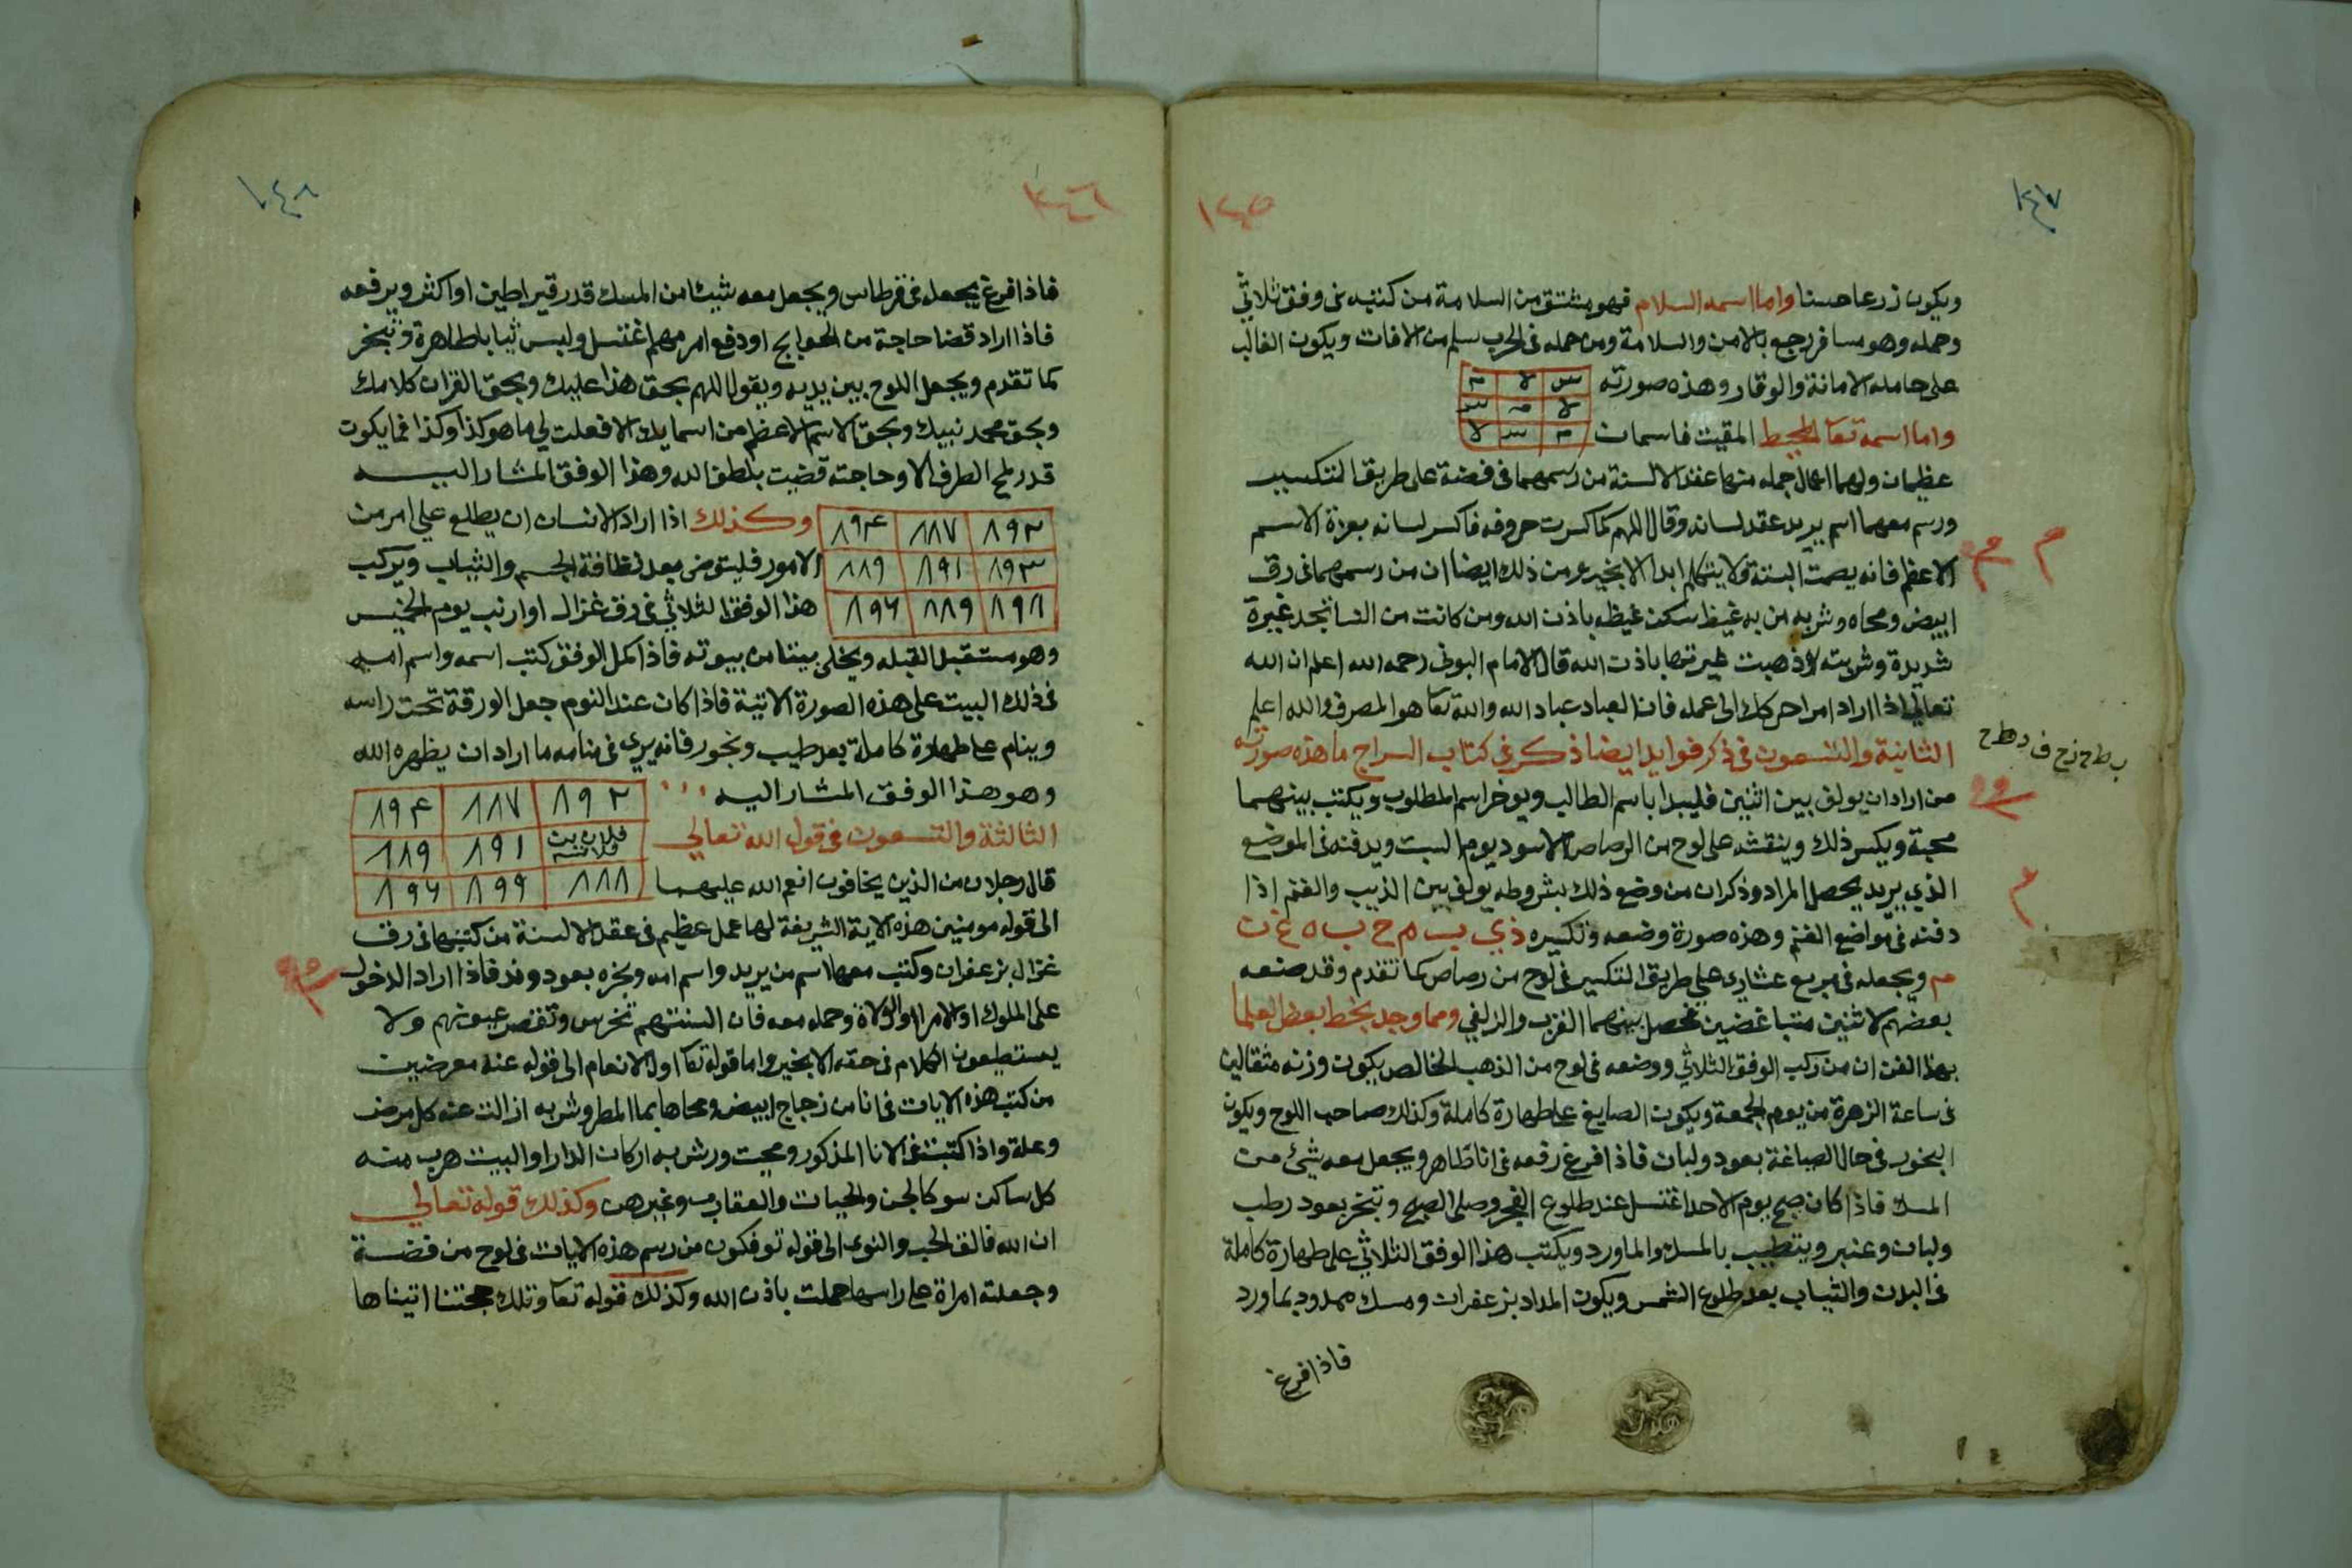 ١٤٧
١٤٥
ويكون زرعا حسنا واما اسمه السلام فهو مشتق من السلامة من كتبه فى وفق ثلاثي
وحمله وهو مسافر رجع بالامن والسلامة ومن حمله فى الحرب سلم من الافات ويكون الغالب
على حامله الامانة والوقار وهذه صورته
س لا م
لا م س
م س لا
واما اسمه تعا المحيط المقيت فاسمات
عظيمان ولهما اعمال جمله منها عقد الالسنة من رسمهما فى فضة على طريق التكسير
ورسم معهما اسم يريد عقد لسانه وقال اللهم كما كسرت حروفه فاكسر لسانه بعزة الاسم
الاعظم فانه يصمت البتة ولا يتكلم ابدا الا بخير ومن ذلك ايضا ان من رسمهما فى رق
ابيض ومحاه وشربه من به غيظ سكن غيظه باذن الله ومن كانت من النسا تجد غيرة
شديدة وشربته ذهبت غيرتها باذن الله قال الامام البونى رحمه الله اعلم ان الله
تعالى اذا اراد امرا حركك الى عمله فان العباد عباد الله والله تعا هو المصرف والله اعلم
الثانية والتسعون فى ذكر فوايد ايضا ذكر فى كتاب السراج ما هذه صورته
من اراد ان يولف بين اثنين فليبدا باسم الطالب ويوخر اسم المطلوب ويكتب بينهما
محبة ويكسر ذلك وينقشه على لوح من الرصاص الاسود يوم السبت ويدفنه فى الموضع
الذي يريد يحصل المراد وذكر ان من وضع ذلك بشروطه يولف بين الذيب والغنم اذا
دفنه فى مواضع الغنم وهذه صورة وضعه وتكسيره ذ ي ب م ح ب ه غ ن
م ويجعله فى مربع عشارى على طريق التكسير فى لوح من رصاص كما تقدم وقد صنعه
بعضهم لاثنين متباغضين فحصل بينهما القرب والزلفي ومما وجد بخط بعض العلما
بهذا الفن ان من ركب الوفق الثلاثي ووضعه فى لوح من الذهب الخالص يكون وزنه مثقالين
فى ساعة الزهرة من يوم الجمعة ويكون الصايغ على طهارة كاملة وكذلك صاحب اللوح ويكون
البخور فى حال الصياغة بعود ولبان فاذا فرغ رفعه فى انا طاهر ويجعل معه شئ من
المسك فاذا كان صبح يوم الاحد اغتسل عند طلوع الفجر وصلى الصبح وتبخر بعود رطب
ولبان وعنبر ويتطيب بالمسك والماورد ويكتب هذا الوفق الثلاثي على طهارة كاملة
فى البدن والثياب بعد طلوع الشمس ويكون المداد بزعفران ومسك ممدود بماورد
فاذا فرغ
١٤٨
١٤٦
فاذا فرغ يجعله فى قرطاس ويجعل معه شيئا من المسك قدر قيراطين او اكثر ويرفعه
فاذا اراد قضا حاجة من الحوايج او دفع امر مهم اغتسل ولبس ثيابا طاهرة وتبخر
كما تقدم ويجعل اللوح بين يديه ويقول اللهم بحق هذا عليك وبحق القران كلامك
وبحق محمد نبيك وبحق الاسم الاعظم من اسمايك الا فعلت لي ما هو كذا وكذا فما يكون
قدر لمح الطرف الا وحاجته قضيت بلطف الله وهذا الوفق المشار اليه
٨٩٢ ٨٨٧ ٨٩٤
٨٩٣ ٨٩١ ٨٨٩
٨٩٨ ٨٨٩ ٨٩٦
وكذلك اذا اراد الانسان ان يطلع على امر من
الامور فليتوضى بعد نظافة الجسم والثياب ويركب
هذا الوفق الثلاثي فى رق غزال او ارنب يوم الخميس
وهو مستقبل القبله ويخلى بيتا من بيوته فاذا كمل الوفق كتب اسمه واسم امه
فى ذلك البيت على هذه الصورة الاتية فاذا كان عند النوم جعل الورقة تحت راسه
وينام على طهارة كاملة بعد طيب وبخور فانه يرى فى منامه ما اراد ان يظهره الله
وهو هذا الوفق المشار اليه
٨٩٢ ٨٨٧ ٨٩٤
فلان بن فلانة ٨٩١ ٨٨٩
٨٨٨ ٨٩٩ ٨٩٦
الثالثة والتسعون فى قول الله تعالى
قال رجلان من الذين يخافون انعم الله عليهما
الى قوله مومنين هذه الاية الشريفة لها عمل عظيم فى عقد الالسنة من كتبها فى رق
غزال بزعفران وكتب معها اسم من يريد واسم امه وبخره بعود وند فاذا اراد الدخول
على الملوك او الامرا او الولاة وحمله معه فان السنتهم تخرس وتقصر عيونهم ولا
يستطيعون الكلام فى حقه الا بخير واما قوله تعا اول الانعام الى قوله عنه معرضين
من كتب هذه الايات فى انا من زجاج ابيض ومحاها بما المطر وشربه ازالت عنه كل مرض
وعلة واذا كتبت فى الانا المذكور ومحيت ورش به اركان الدار او البيت هرب منه
كل ساكن سو كالجن والحيات والعقارب وغيرهن وكذلك قوله تعالى
ان الله فالق الحب والنوى الى قوله توفكون من رسم هذه الايات فى لوح من فضة
وجعلته امراة على راسها حملت باذن الله وكذلك قوله تعا وتلك حجتنا اتيناها